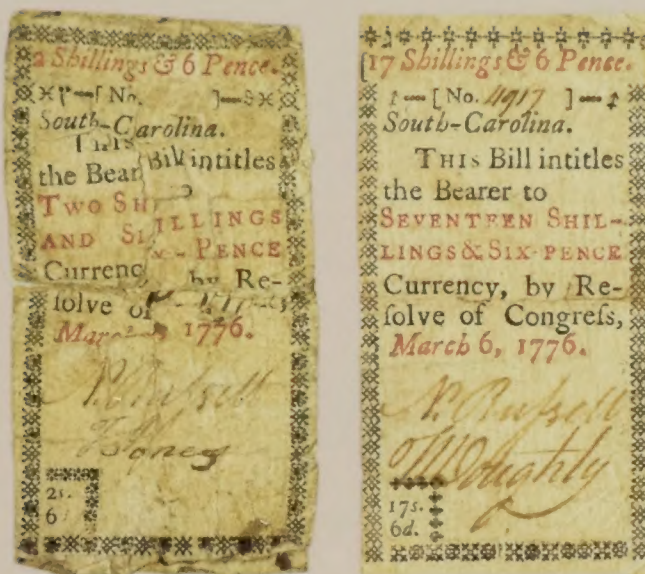 2 Shillings & 6 Pence.
[ No. ]
South-Carolina.
THIS Bill intitles
the Bear
TWO SHILLINGS
AND SIX-PENCE
Currency, by Re-
ſolve of
March 1776.
N. Ruſsell
2s.
6
[17 Shillings & 6 Pence.
[ No. 4917 ]
South-Carolina.
THIS Bill intitles
the Bearer to
SEVENTEEN SHIL-
LINGS & SIX-PENCE
Currency, by Re-
ſolve of Congreſs,
March 6, 1776.
N. Ruſsell
Doughty
17s.
6d.